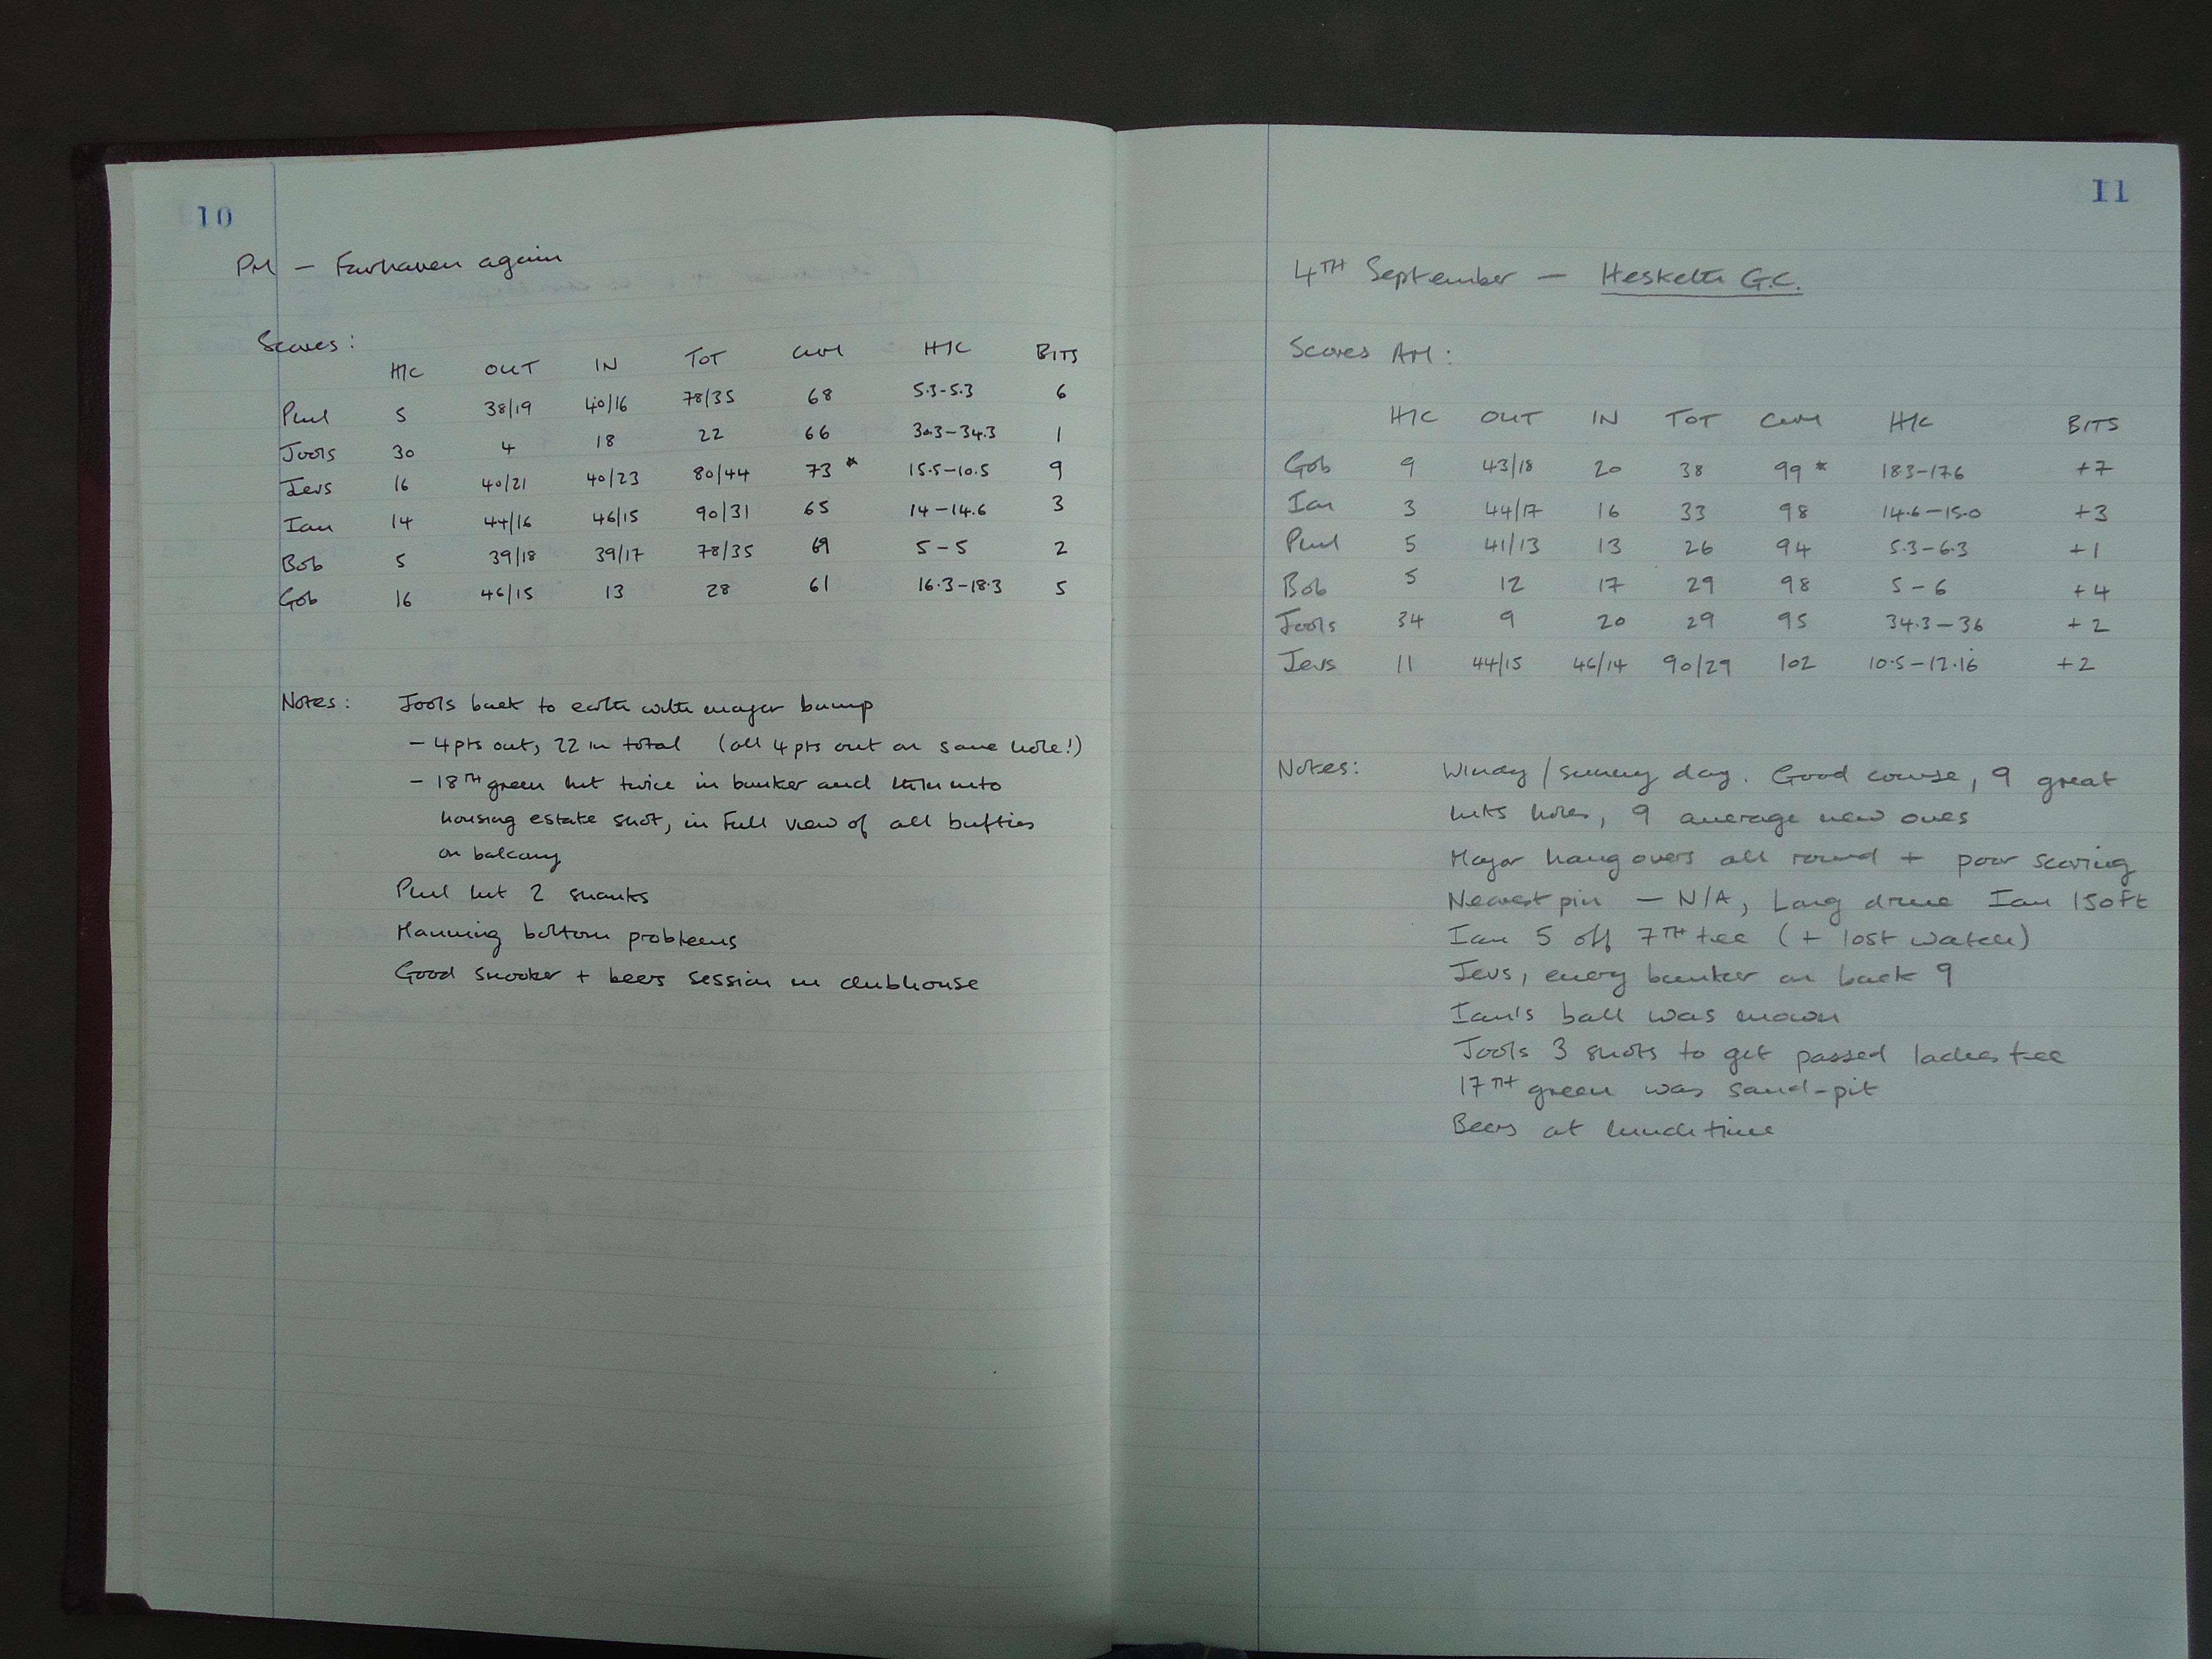 10
PM – Fairhaven again
Scores:
H/C OUT IN TOT CUM H/C BITS
Paul 5 38/19 40/16 78/35 68 5.3-5.3 6
Jools 30 4 18 22 66 30.3-34.3 1
Jevs 16 40/21 40/23 80/44 73 * 15.5-10.5 9
Ian 14 44/16 46/15 90/31 65 14-14.6 3
Bob 5 39/18 39/17 78/35 69 5-5 2
Gob 16 46/15 13 28 61 16.3-18.3 5
Notes: Jools back to earth with major bump
– 4pts out, 22 in total (all 4 pts out on same hole!)
– 18TH green hit twice in bunker and thin into
housing estate shot, in full view of all bufties
on balcony
Paul hit 2 shanks
Manning bottom problems
Good snooker + beers session in clubhouse
11
4TH September – Hesketh G.C.
Scores AM:
H/C OUT IN TOT CUM H/C BITS
Gob 9 43/18 20 38 99 * 18.3-17.6 +7
Ian 3 44/17 16 33 98 14.6-15.0 +3
Paul 5 41/13 13 26 94 5.3-6.3 +1
Bob 5 12 17 29 98 5-6 +4
Jools 34 9 20 29 95 34.3-36 +2
Jevs 11 44/15 46/14 90/29 102 10.5-12.16 +2
Notes: Windy/sunny day. Good course, 9 great
links holes, 9 average new ones
Major hangovers all round + poor scoring
Nearest pin – N/A, Long drive Ian 150ft
Ian 5 off 7TH tee (+ lost watch)
Jevs, every bunker on back 9
Ian's ball was mown
Jools 3 shots to get passed ladies tee
17TH green was sand-pit
Beers at lunchtime